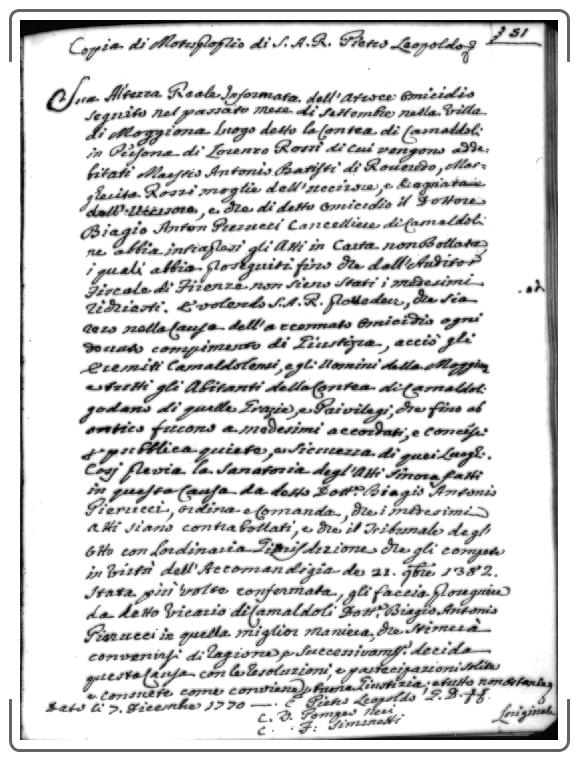 31
Copia di Motuproprio di S. A. R. Pietro Leopoldo
Sua Altezza Reale Informata dell'Atroce Omicidio
seguito nel passato mese di Settembre nella Villa
di Moggiona Luogo detto la Contea di Camaldoli
in Persona di Lorenzo Rossi di cui vengono adde:
bitati Maestro Antonio Batisti di Roveredo, Mar:
gherita Rossi moglie dell'ucciso, e
dell'Uccisore, e che di detto Omicidio il Dottore
Biagio Anton Pierucci Cancelliere di Camaldoli
ne abbia intrapresi gli Atti in Carta non Bollata,
i quali abbia proseguiti fino che dall'Auditore
Fiscale di Firenze non sieno stati i medesimi
richiesti. E volendo S. A. R. provedere, che sia
reso nella Causa dell'accennato Omicidio ogni
dovuto compimento di Giustizia, acciò gli
Eremiti Camaldolensi, e gli Uomini della Moggiona
e tutti gli Abitanti della Contea di Camaldoli
godano di quelle Grazie, e Privilegi, che fino ab
antico furono a medesimi accordati, e concessi
p pubblica quiete, e sicurezza di quei Luoghi.
Così previa la Sanatoria degl'Atti sinora fatti
in questa Causa da detto Dott. Biagio Antonio
Pierucci, ordina e Comanda, che i medesimi
Atti siano contrabollati, e che il Tribunale degl'
Otto con l'ordinaria Giurisdizione che gli compete
in virtù dell'Accomandigia de 21. 9bre 1382.
Stata più volte confermata, gli faccia proseguire
da detto Vicario di Camaldoli Dott. Biagio Antonio
Pierucci in quella miglior maniera, che stimerà
convenirsi di ragione, e Successivam. decida
questa Causa con le resoluzioni, e partecipazioni solite
e consuete come conviene p buona Giustizia; e tutto non ostante
Dato li 7. Dicembre 1770 — C Pietro Leopoldo G. D.
C. V. Pompeo Neri
C. F: Siminetti
L'originale